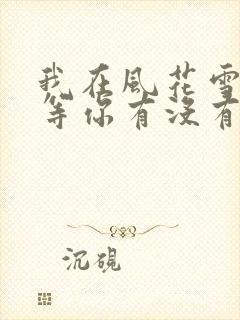 我在風花雪
等你有沒有
沉硯